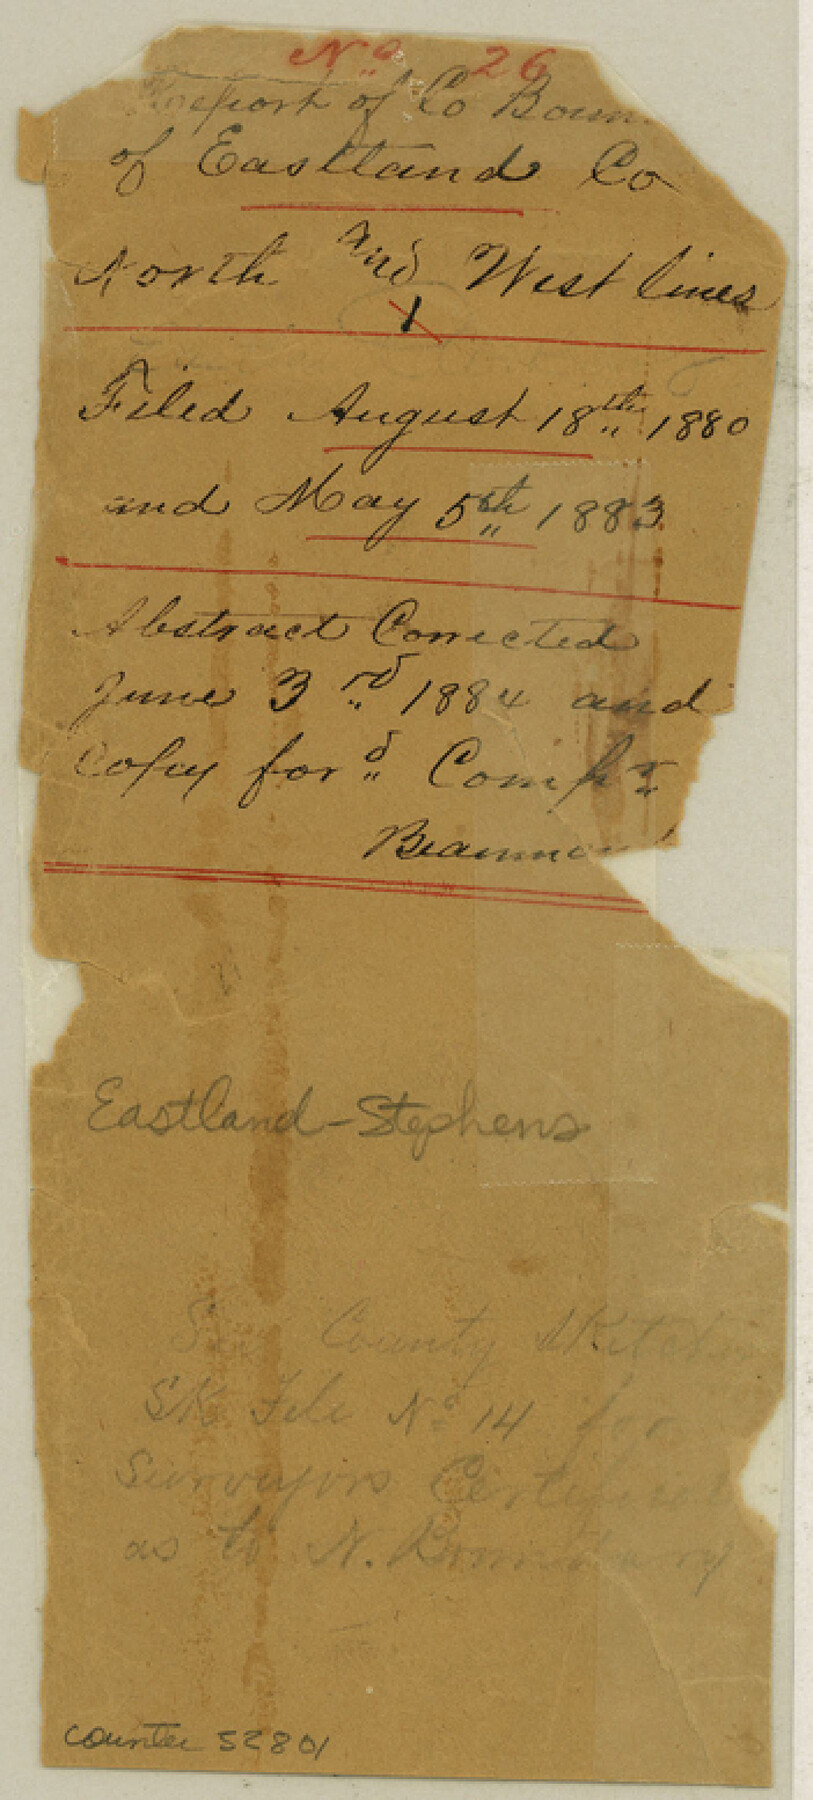 No. 26
Report of Co Boun
of Eastland Co
North and West lines
1
Filed August 18th 1880
and May 5th 1883
Abstract Corrected
June 3rd 1884 and
Copy ford Compr
Beaumon
Eastland-Stephens
See County Sketch
SK File No 14 for
Surveyors Certificate
as to N. Boundary
counter 52801